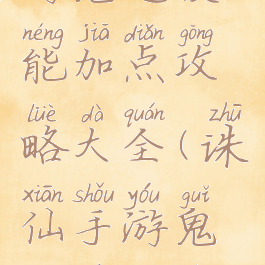 néng jiā diǎn gōng
能加点攻
lüè dà quán zhū
略大全(诛
xiān shǒu yóu guǐ
仙手游鬼